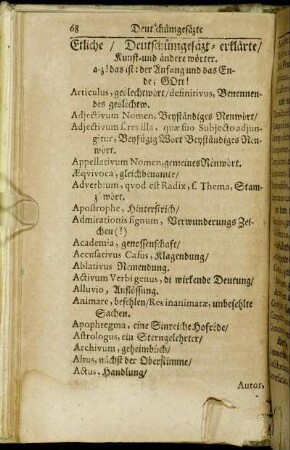 68 Deutschümgesäzte
Etliche / Deutschümgesäzt-erklärte /
Kunst-und andere wörter.
a-z! das ist: der Anfang und das En-
de; GOtt!
Articulus, geslechtwort / definitivus, Benennen-
des geslechtw.
Adjectivum Nomen, Beyständiges Nenwort /
Adjectivum s. res illa, quæ suo Subjecto adjun-
gitur, Beyfügig Wort Beyständiges Nen-
wort.
Appellativum Nomen, gemeines Nenwort.
Æqvivoca, gleichbenante /
Adverbium, qvod est Radix, s. Thema, Stam-
z' wort.
Apostrophe, Hinterstrich /
Admirationis signum, Verwunderungs Zei-
chen (!)
Academia, genossenschaft /
Accusativus Casus, Klagendung /
Ablativus Nemendung.
Activum Verbi genus, di wirkende Deutung /
Alluvio, Auflösung.
Animare, beselen / Res inanimatæ, unbesehlte
Sachen.
Apophregma, eine Sinreiche Hofrede /
Astrologus, ein Sterngelehrter /
Archivum, geheimbuch /
Altus, nächst der Oberstimme /
Actus, Handlung /
Autor,